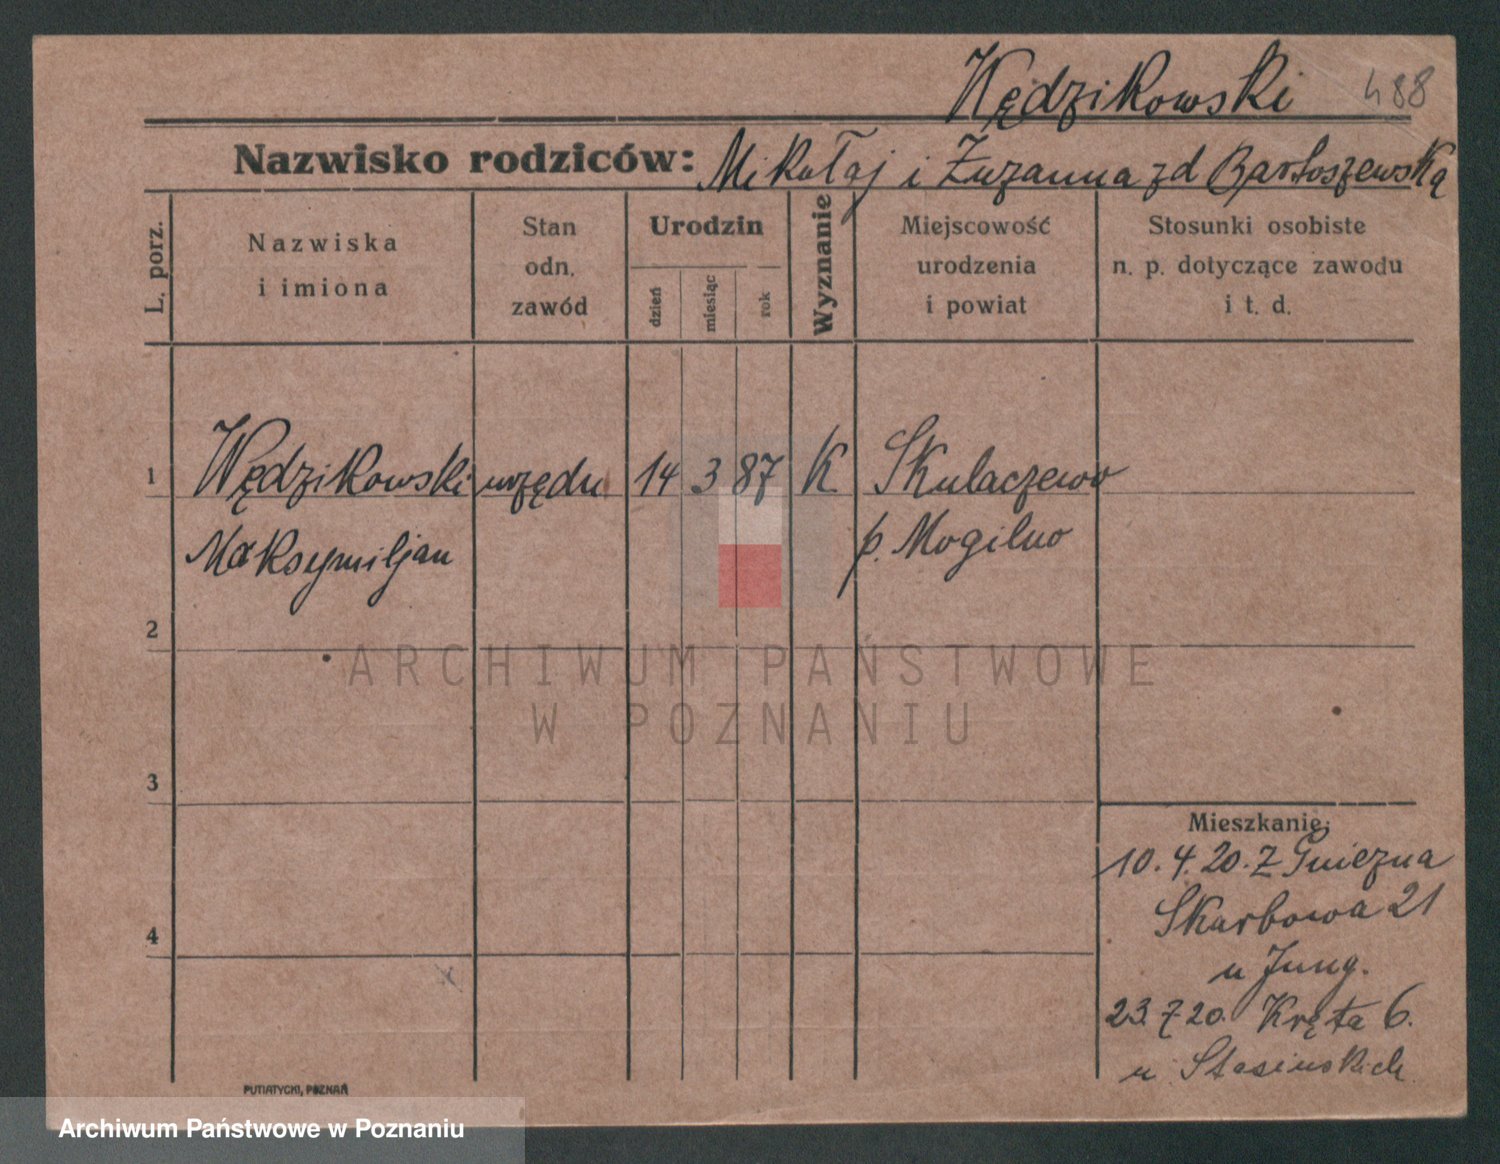 Wędzikowski 488
Nazwisko rodziców: Mikołaj i Zuzanna zd Bartoszewska
L. porz.
Nazwiska
i imiona
Stan
odn.
zawód
Urodzin
dzień
miesiąc
rok
Wyznanie
Miejscowość
urodzenia
i powiat
Stosunki osobiste
n. p. dotyczące zawodu
i t. d.
1 Wędzikowski urzędn 14 3 87 K Skulaczewo
Maksymiljan p. Mogilno
2
ARCHIWUM PAŃSTWOWE
W POZNANIU
3
Mieszkanie:
10.4.20. Z Gniezna
Skarbowa 21
4
u Jung.
23.7.20. Kręta 6.
u Stasinskich
PUTIATYCKI, POZNAŃ
Archiwum Państwowe w Poznaniu